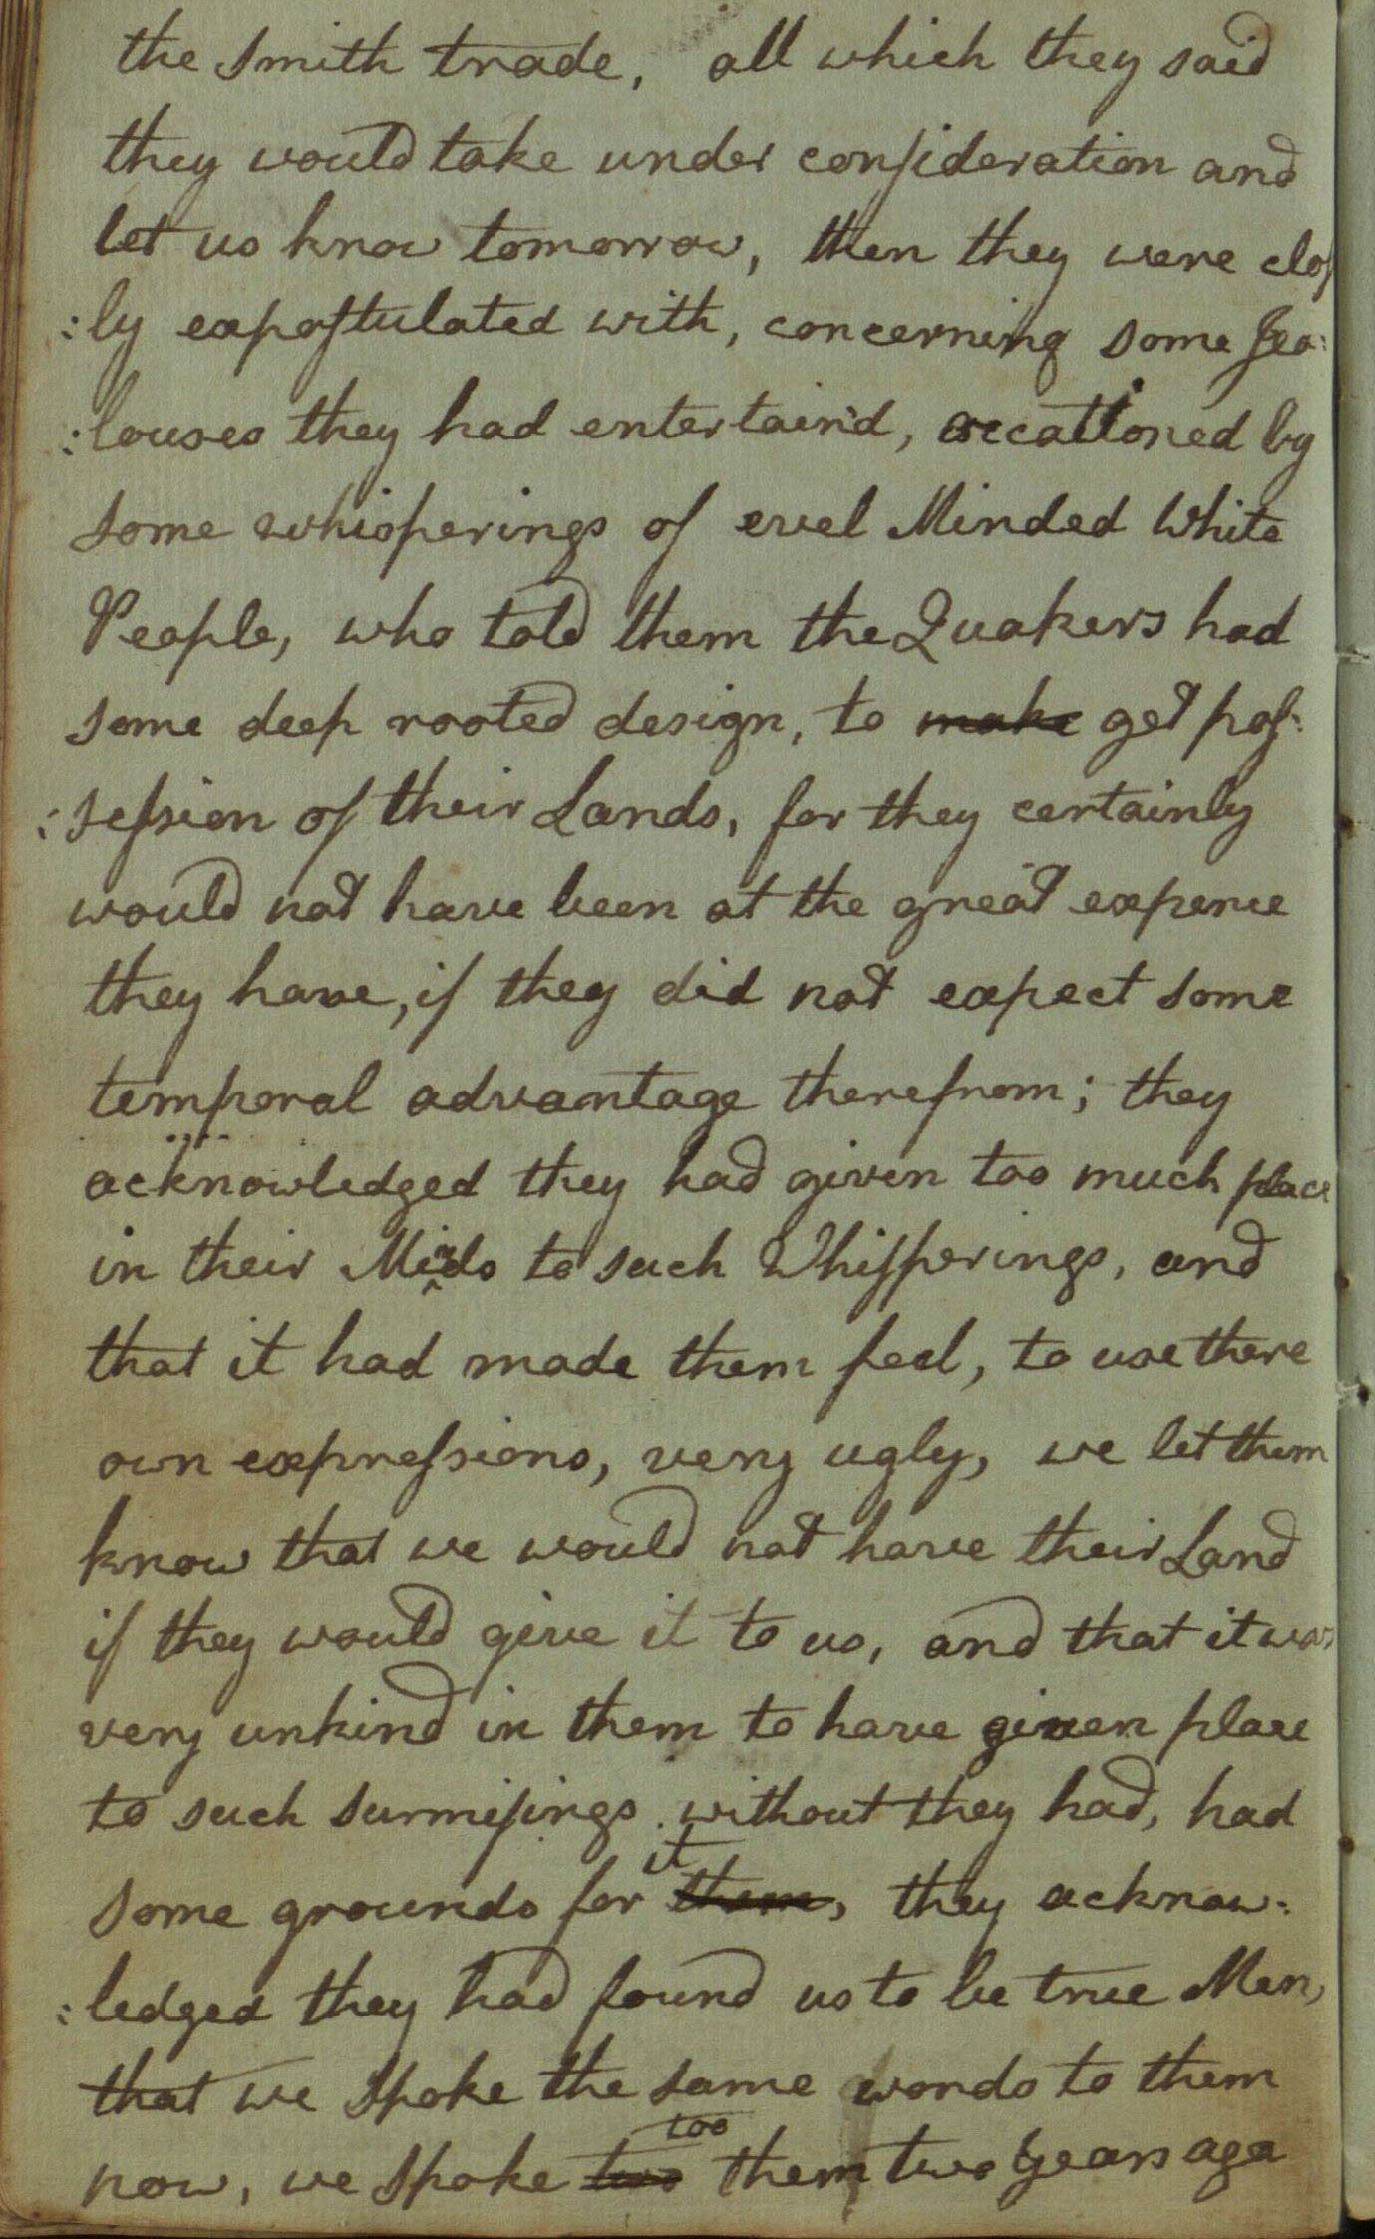 the Smith trade, all which they said
they would take under consideration and
let us know tomorrow, then they were clos
:ly expostulated with, concerning some Jea:
:louses they had entertain'd, occationed by
some whisperings of evel Minded White
People, who told them the Quakers had
some deep rooted design, to make get pos:
:session of their Lands, for they certainly
would not have been at the great expence
they have, if they did not expect some
temporal advantage therefrom; they
acknowledged they had given too much place
in their Minds to such Whisperings, and
that it had made them feel, to use there
own expressions, very ugly, we let them
know that we would not have their Land
if they would give it to us, and that it was
very unkind in them to have given place
to such surmisings without they had, had
it
some grounds for them, they acknow:
:ledged they had found us to be true Men,
that we spoke the same words to them
too
now, we spoke two them two years ago